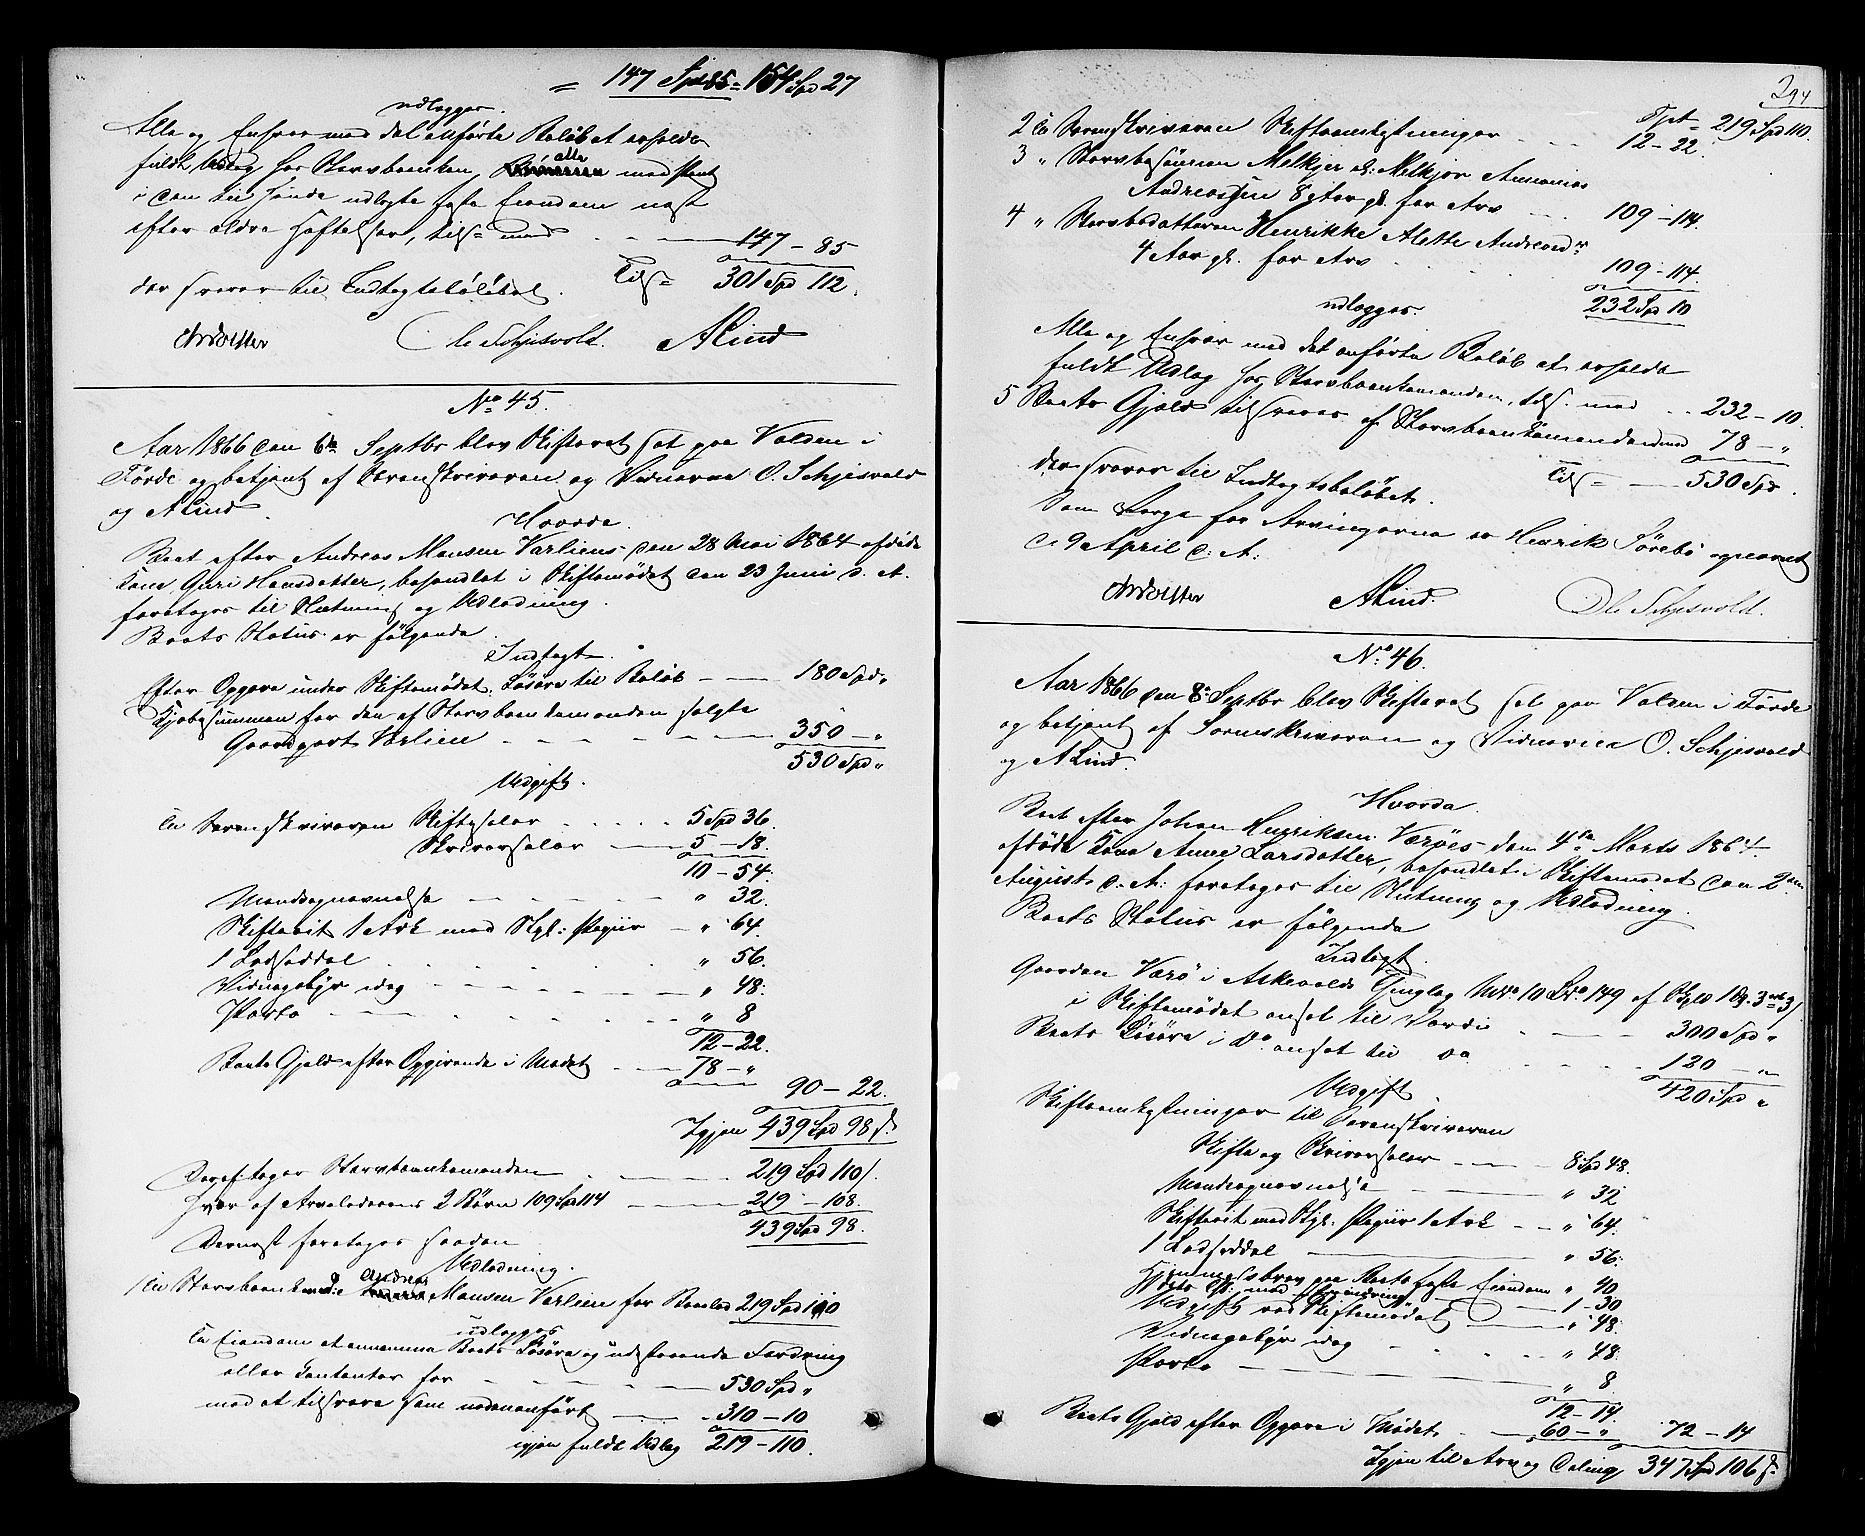 = 147 Spd 85 = 154 Spd 27
udlægges.
Alle og Enhver med det anførte Beløb at erholde
fuldt Udlæg hos Stervboenken, alle med Pant
i den til hende udlagte faste Eiendom næst
efter ældre Heftelser, tils= med 147 - 85
der svarer til Indtægtsbeløbet. Tils= 301 Spd 112.
Ole Schjesvold. A Lind
No 45.
Aar 1866 den 6te Septbr blev Skifteret sat paa Valden i
Førde og betjent af Sorenskriveren og Vidnerne O. Schjesvold
og A Lind.
Hvorda.
Boet efter Andreas Monsen Varliens den 28 Mai 1864 afdøde
Kone Guri Hansdatter, behandlet i Skiftemødet den 23 Juni s. A.
foretoges til Slutning og Udlodning.
Boets Status er følgende
Indtægt.
Efter Opgave under Skiftemødet Løsøre til Beløb 180 Spd "
Kjøbesummen for den af Stervboenkemanden solgte
Gaardpart Varlien 350 - "
530 Spd "
Udgift.
Til Sorenskriveren Skiftesalær 5 Spd 36.
Skriversalær 5 - 18.
10 - 54.
Mandsopnævnelse " 32.
Skiftebrev 1 Ark med Stpl: Papiir " 64.
1 Lodseddel " 56.
Vidnegebyr idag " 48.
Porto " 8
12 - 22.
Boets Gjeld efter Opgivende i Mødet 78 - "
90 - 22.
Igjen 439 Spd 98 s.
Deraf tager Stervboenkemanden 219 Spd 110 s.
hver af Arveladerens 2 Børn 109 Spd 114 219 - 108.
439 Spd 98.
Dernæst foretoges saadan
Udlodning.
1 Til Stervboenkemand Andreas Monsen Varlien for Boeslod 219 Spd 110
udlægges
Til Eiendom at annamme Boets Løsøre og udestaaende Fordring
eller Contanter for 530 Spd "
med at tilsvare som nedenanført 310 - 10
igjen fuldt Udlæg 219 - 110.
294
Tpt = 219 Spd 110.
2 Til Sorenskriveren Skifteomkostninger 12 - 22.
3 " Stervbosønnen Melkjer eller Melkjør Antonius
Andreassen 8 Aar gl. for Arv 109 - 114.
4 " Stervbodatteren Henrikke Alette Andreasdr
4 Aar gl. for Arv 109 - 114
232 Spd 10
udlægges.
Alle og Enhver med det anførte Beløb at erholde
fuldt Udlæg hos Stervboenkemanden, tils. med 232 - 10.
5 Boets Gjeld tilsvares af Stervboenkemanden med 78 - "
der svarer til Indtægtsbeløbet. Tils= 530 Spd.
Som Værge for Arvingerne er Henrik Førebø opnævnt
d. 9 April d. A.
A Lind. Ole Schjesvold.
No. 46.
Aar 1866 den 8de Septbr blev Skifteret sat paa Valden i Førde
og betjent af Sorenskriveren og Vidnerne O. Schjesvold
og A Lind.
Hvorda
Boet efter Johan Henriksen Værøes den 4de Marts 1864
afdøde Kone Anne Larsdatter, behandlet i Skiftemødet den 2den
August d. A. foretoges til Slutning og Udlodning.
Boets Status er følgende
Indtægt.
Gaarden Værø i Askevolds Thinglag Mno 10 Lno 149 af Skyld 1 Dr. 3 ort 3 s
i Skiftemødet ansat til Værdi 300 Spd "
Boets Løsøre i Do ansat til do 120 - "
420 Spd "
Udgift.
Skifteomkostninger til Sorenskriveren
Skifte og Skriversalær 8 Spd 48.
Mandsopnævnelse " 32
Skiftebrev med Stpl. Papiir 1 Ark " 64.
1 Lodseddel " 56.
Hjemmelsbrev paa Boets faste Eiendom " 40
1 - 30
Udgift ved Skiftemødet " 48.
Vidnegebyr idag " 48.
Porto " 8
12 - 14.
Boets Gjeld efter Opgave i Mødet 60 - " 72 - 14
Igjen til Arv og Deling 347 Spd 106 s.